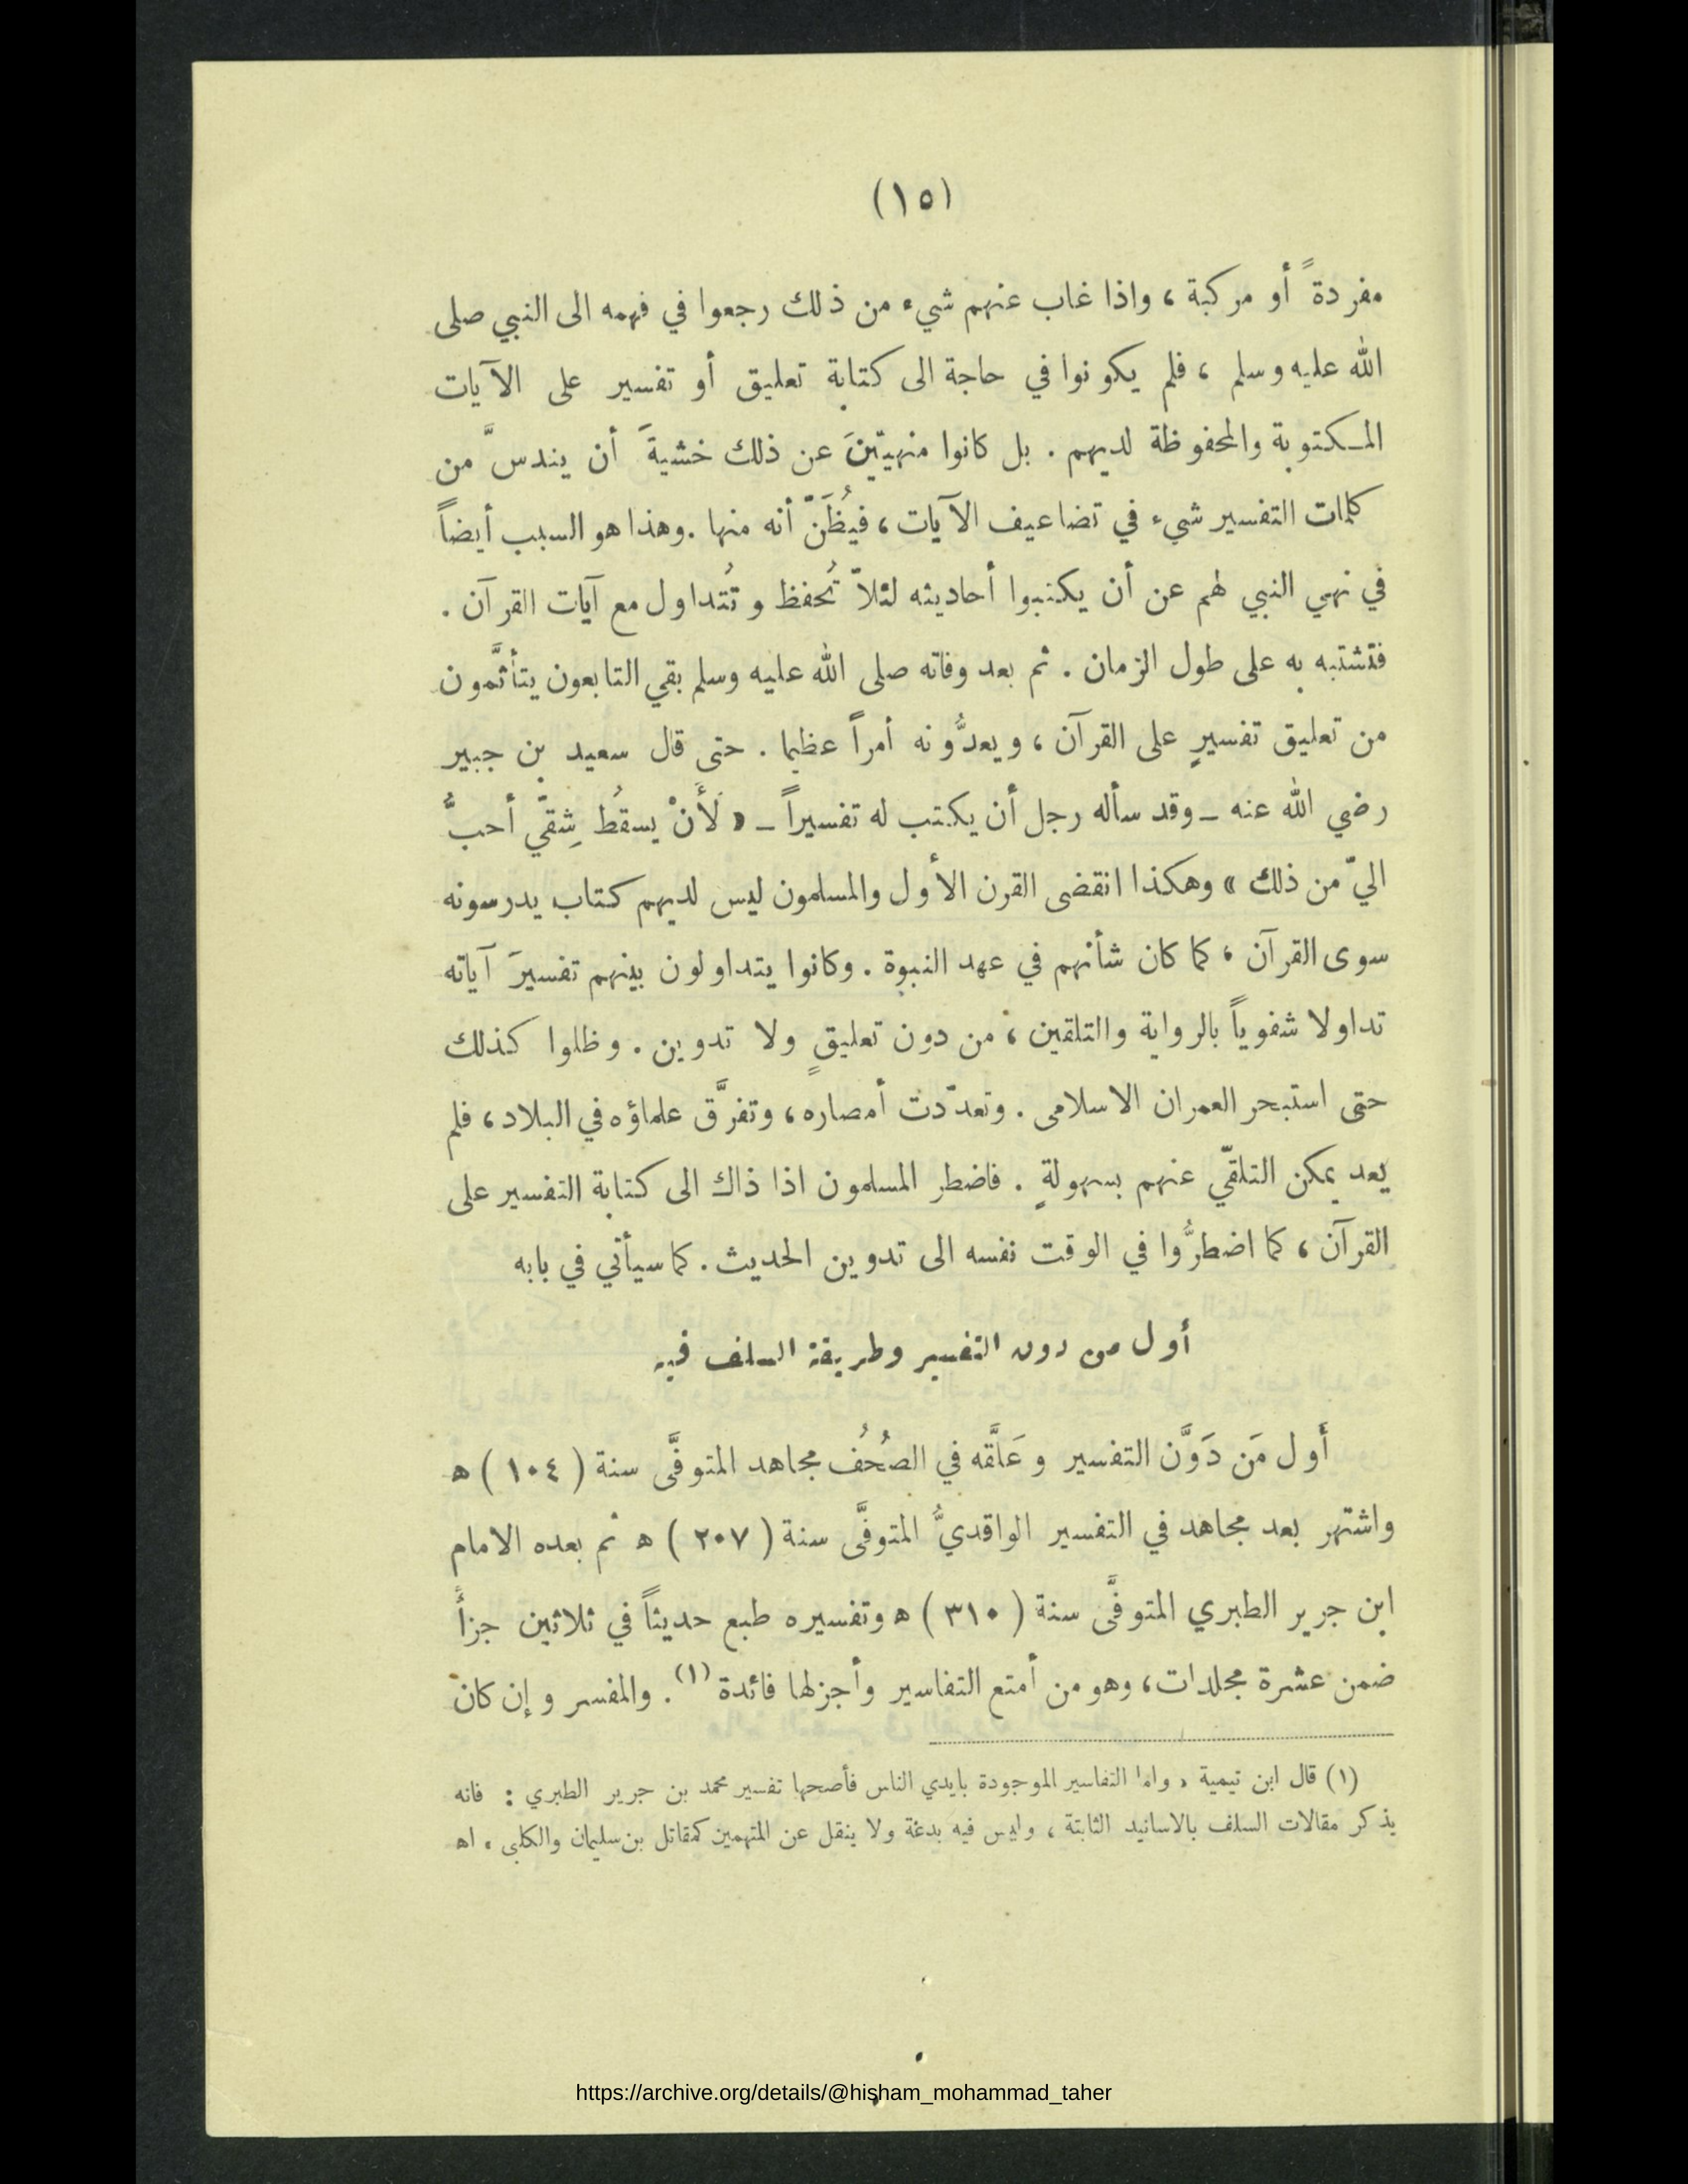 (١٥)
مفردةً أو مركبة ، واذا غاب عنهم شيء من ذلك رجعوا في فهمه الى النبي صلى
الله عليه وسلم ، فلم يكونوا في حاجة الى كتابة تعليق أو تفسير على الآيات
المـكتوبة والمحفوظة لديهم . بل كانوا منهيّينَ عن ذلك خشيةَ أن يندسَّ من
كلمات التفسير شيء في تضاعيف الآيات ، فيُظَنّ أنه منها . وهذا هو السبب أيضاً
في نهي النبي لهم عن أن يكتبوا أحاديثه لئلاّ تُحفظ و تُتداول مع آيات القرآن .
فتشتبه به على طول الزمان . ثم بعد وفاته صلى الله عليه وسلم بقي التابعون يتأثَّمون
من تعليق تفسيرٍ على القرآن ، ويعدُّونه أمراً عظيما . حتى قال سعيد بن جبير
رضي الله عنه ــ وقد سأله رجل أن يكتب له تفسيراً ــ « لَأَنْ يسقُط شِقّي أحبُّ
اليّ من ذلك » وهكذا انقضى القرن الأول والمسلمون ليس لديهم كتاب يدرسونه
سوى القرآن ، كما كان شأنهم في عهد النبوة . وكانوا يتداولون بينهم تفسيرَ آياته
تداولا شفوياً بالرواية والتلقين ، من دون تعليقٍ ولا تدوين . وظلوا كذلك
حتى استبحر العمران الاسلامى . وتعدّدت أمصاره ، وتفرَّق علماؤه في البلاد ، فلم
يعد يمكن التلقّي عنهم بسهولةٍ . فاضطر المسلمون اذا ذاك الى كتابة التفسير على
القرآن ، كما اضطرُّوا في الوقت نفسه الى تدوين الحديث . كما سيأتي في بابه
أول من دون التفسير وطريقة السلف فيه
أول مَن دَوَّن التفسير وعَلَّقه في الصُحُف مجاهد المتوفَّى سنة ( ١٠٤ ) ه
واشتهر بعد مجاهد في التفسير الواقديُّ المتوفَّى سنة ( ٢٠٧ ) ه ثم بعده الامام
ابن جرير الطبري المتوفَّى سنة ( ٣١٠ ) ه وتفسيره طبع حديثاً في ثلاثين جزأً
ضمن عشرة مجلدات ، وهو من أمتع التفاسير وأجزلها فائدة (١) . والمفسر وإن كان
(١) قال ابن تيمية « واما التفاسير الموجودة بايدي الناس فأصحها تفسير محمد بن جرير الطبري : فانه
يذكر مقالات السلف بالاسانيد الثابتة ، وليس فيه بدعة ولا ينقل عن المتهمين كمقاتل بن سليمان والكلبي » اه
https://archive.org/details/@hisham_mohammad_taher